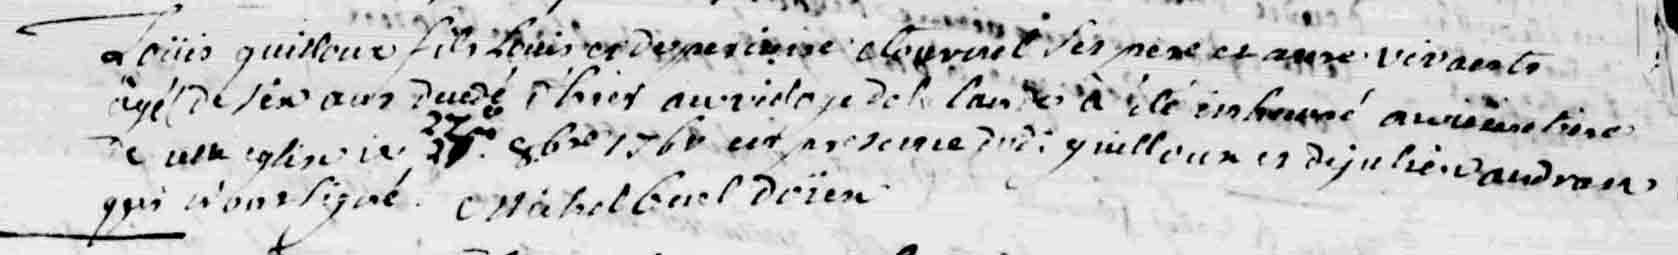 Loüis guilloux fils Louis et de perinne Touruel ses pere et mere vivants
âgé de six ans decedé d'hier au vilage de la lande à été inhumé au cimetiere
de cette eglise ce 27e 8bre 1760 en presence dudt guilloux et de julien vaudran
qui n'ont signé. Michel buel doïen